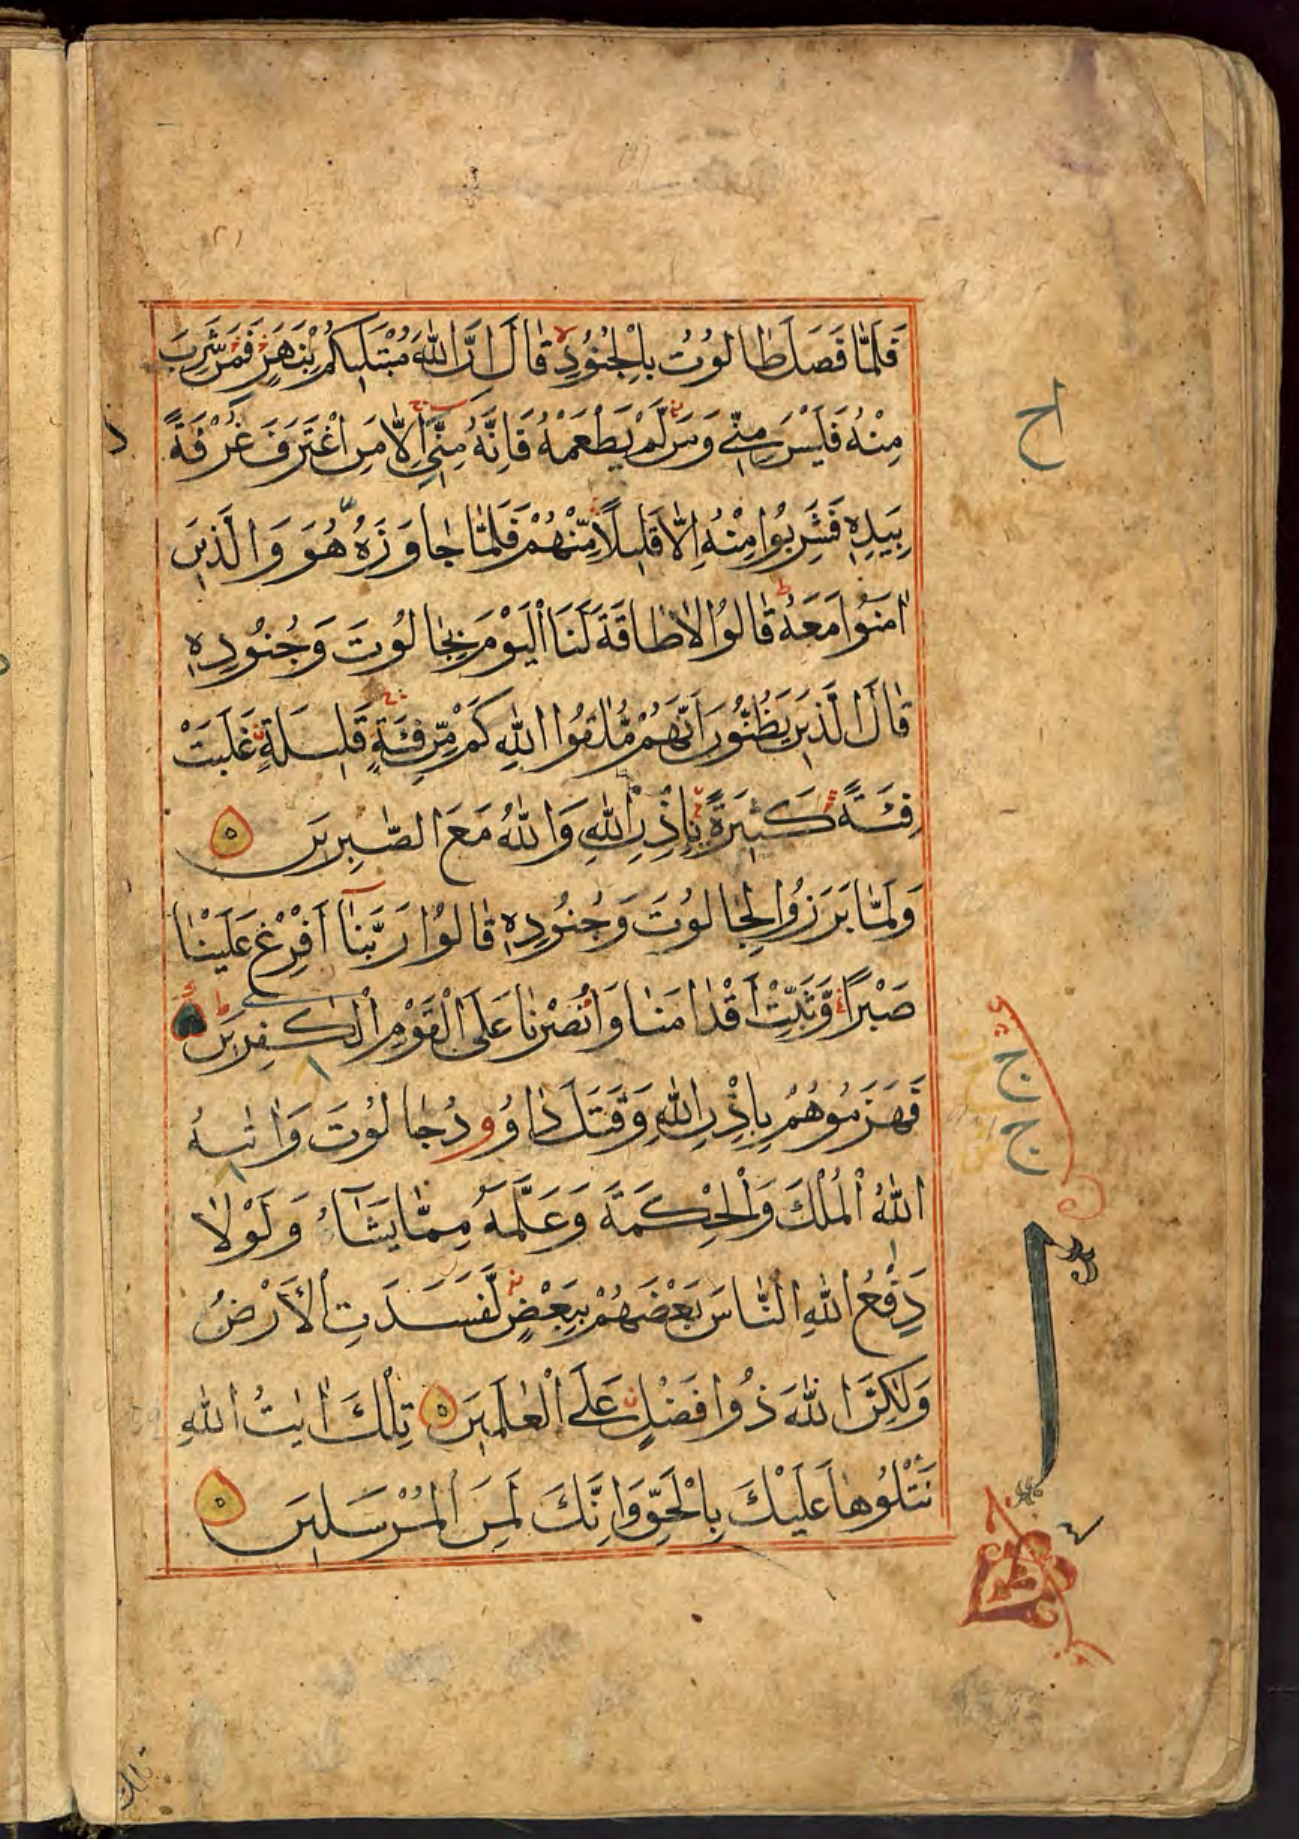 فَلَمَّا فَصَلَ طَالُوتُ بِالْجُنُودِ قَالَ اِنَّ اللّٰهَ مُبْتَلِيكُمْ بِنَهَرٍ فَمَنْ شَرِبَ
مِنْهُ فَلَيْسَ مِنِّي وَمَنْ لَّمْ يَطْعَمْهُ فَاِنَّهُ مِنِّي اِلَّا مَنِ اغْتَرَفَ غُرْفَةً
بِيَدِهِ فَشَرِبُوا مِنْهُ اِلَّا قَلِيلًا مِّنْهُمْ فَلَمَّا جَاوَزَهُ هُوَ وَالَّذِينَ
اٰمَنُوا مَعَهُ قَالُوا لَا طَاقَةَ لَنَا الْيَوْمَ بِجَالُوتَ وَجُنُودِهِ
قَالَ الَّذِينَ يَظُنُّونَ اَنَّهُمْ مُّلٰقُوا اللّٰهِ كَمْ مِّنْ فِئَةٍ قَلِيلَةٍ غَلَبَتْ
فِئَةً كَثِيرَةً بِاِذْنِ اللّٰهِ وَاللّٰهُ مَعَ الصّٰبِرِينَ ٥
وَلَمَّا بَرَزُوا لِجَالُوتَ وَجُنُودِهِ قَالُوا رَبَّنَا اَفْرِغْ عَلَيْنَا
صَبْرًا وَّثَبِّتْ اَقْدَامَنَا وَانْصُرْنَا عَلَى الْقَوْمِ الْكٰفِرِينَ
فَهَزَمُوهُمْ بِاِذْنِ اللّٰهِ وَقَتَلَ دَاوُودُ جَالُوتَ وَاٰتٰىهُ
اللّٰهُ الْمُلْكَ وَالْحِكْمَةَ وَعَلَّمَهُ مِمَّا يَشَآءُ وَلَوْلَا
دَفْعُ اللّٰهِ النَّاسَ بَعْضَهُمْ بِبَعْضٍ لَّفَسَدَتِ الْاَرْضُ
وَلٰكِنَّ اللّٰهَ ذُوا فَضْلٍ عَلَى الْعٰلَمِينَ ٥ تِلْكَ اٰيٰتُ اللّٰهِ
نَتْلُوهَا عَلَيْكَ بِالْحَقِّ وَاِنَّكَ لَمِنَ الْمُرْسَلِينَ ٥
اح
ج
ج
تلك